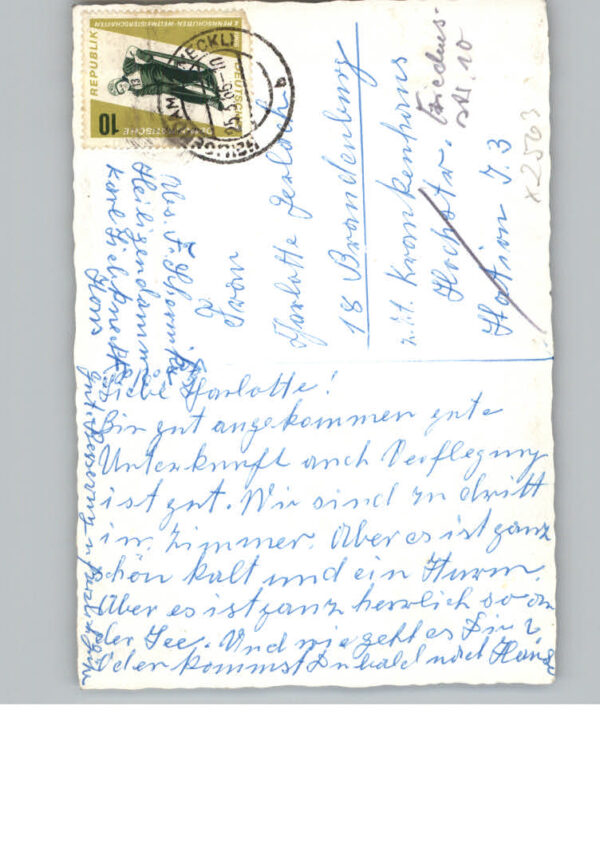 DEUTSCHE DEMOKRATISCHE REPUBLIK
10
Abs. F.
Heiligendamm
Karl Liebknecht
Haus
Frau
Charlotte Gerlach
18 Brandenburg
z.Zt. Krankenhaus
Hochstr.
Friedens-
str. 10
Station I. 3
x2563
Liebe Charlotte!
Bin gut angekommen gute
Unterkunft auch Verflegung
ist gut. Wir sind zu dritt
im Zimmer. Aber es ist ganz
schön kalt und ein Sturm.
Aber es ist ganz herrlich so an
der See. Und wie geht es Dir?
Oder kommst Du bald nach Hause
Gute Besserung u.